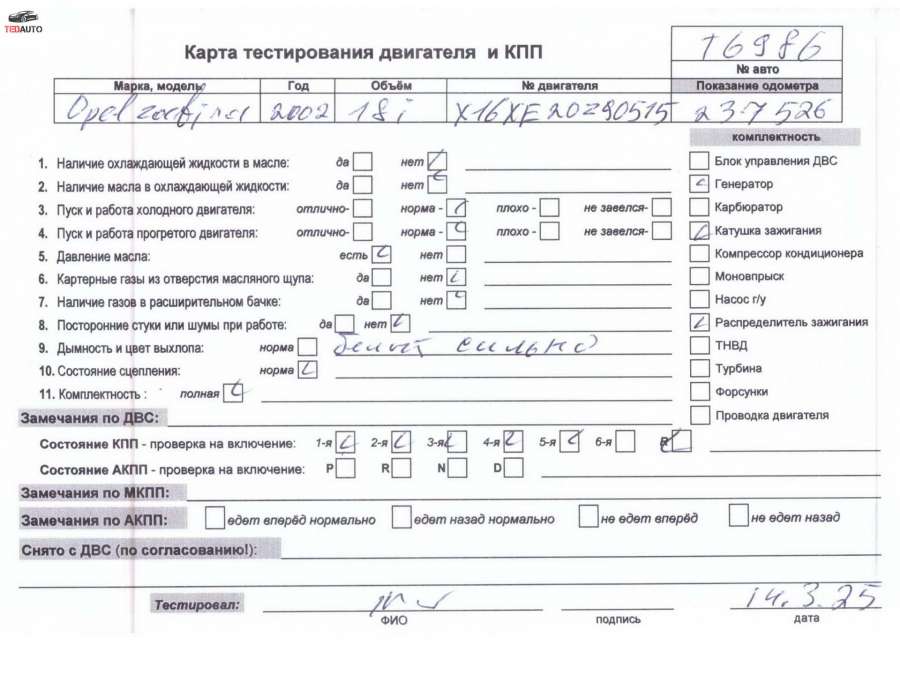 TEDAUTO
Карта тестирования двигателя и КПП
T6986
№ авто
Марка, модель Год Объём № двигателя Показание одометра
Opel zafira 2002 18i X16XE20290515 237526
комплектность
1. Наличие охлаждающей жидкости в масле: да нет
2. Наличие масла в охлаждающей жидкости: да нет
3. Пуск и работа холодного двигателя: отлично- норма - плохо - не завелся-
4. Пуск и работа прогретого двигателя: отлично- норма - плохо - не завелся-
5. Давление масла: есть нет
6. Картерные газы из отверстия масляного щупа: да нет
7. Наличие газов в расширительном бачке: да нет
8. Посторонние стуки или шумы при работе: да нет
9. Дымность и цвет выхлопа: норма белый сильно
10. Состояние сцепления: норма
11. Комплектность : полная
Блок управления ДВС
Генератор
Карбюратор
Катушка зажигания
Компрессор кондиционера
Моновпрыск
Насос г/у
Распределитель зажигания
ТНВД
Турбина
Форсунки
Проводка двигателя
Замечания по ДВС:
Состояние КПП - проверка на включение: 1-я 2-я 3-я 4-я 5-я 6-я R
Состояние АКПП - проверка на включение: P R N D
Замечания по МКПП:
Замечания по АКПП: едет вперёд нормально едет назад нормально не едет вперёд не едет назад
Снято с ДВС (по согласованию!):
Тестировал: 14.3.25
ФИО подпись дата